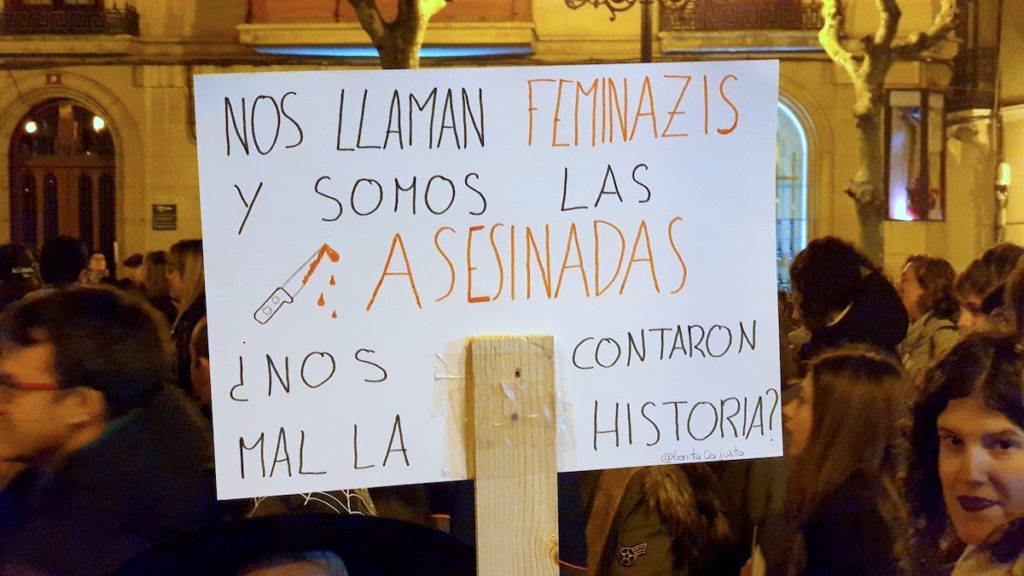 NOS LLAMAN FEMINAZIS
Y SOMOS LAS
ASESINADAS
¿NOS CONTARON
MAL LA HISTORIA?